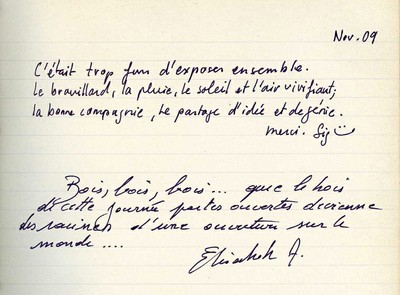 Nov. 09
C'était trop fun d'exposer ensemble.
le brouillard, la pluie, le soleil et l'air vivifiant;
la bonne compagnie, le partage d'idée et de génie.
merci. Sig
Bois, bois, bois... que le bois
de cette journée portes ouvertes devienne
des racines d'une ouverture sur le
monde....
Elisabeth A.